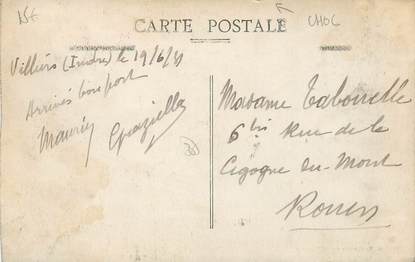 15€
CARTE POSTALE
CHOC
Villiers (Indre) le 19/6/
Arrivés bon port
Maurice Graziella
Madame Tabouelle
6 bis Rue de la
Cigogne du Mont
Rouen